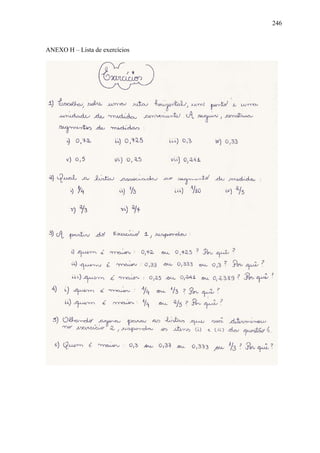 246
ANEXO H – Lista de exercícios
Exercícios
1) Escolha, sobre uma reta horizontal, um ponto e uma
unidade de medida conveniente. A seguir, construa
segmentos de medidas:
i) 0,72 ii) 0,725 iii) 0,3 iv) 0,33
v) 0,5 vi) 0,25 vii) 0,241
2) Qual a lista associada ao segmento de medida:
i) 1/4 ii) 1/3 iii) 1/20 iv) 2/5
v) 2/3 vi) 2/7
3) A partir do Exercício 1, responda:
i) quem é maior: 0,72 ou 0,725? Por quê?
ii) quem é maior: 0,33 ou 0,333 ou 0,3? Por quê?
iii) quem é maior: 0,25 ou 0,241 ou 0,2399? Por quê?
4) i) quem é maior: 1/4 ou 1/3? Por quê?
ii) quem é maior: 1/4 ou 2/5? Por quê?
5) Olhando agora para as listas que você determinou
no exercício 2, responda os itens (i) e (ii) da questão 4.
6) Quem é maior: 0,3 ou 0,37 ou 0,373 ou 1/3? Por quê?